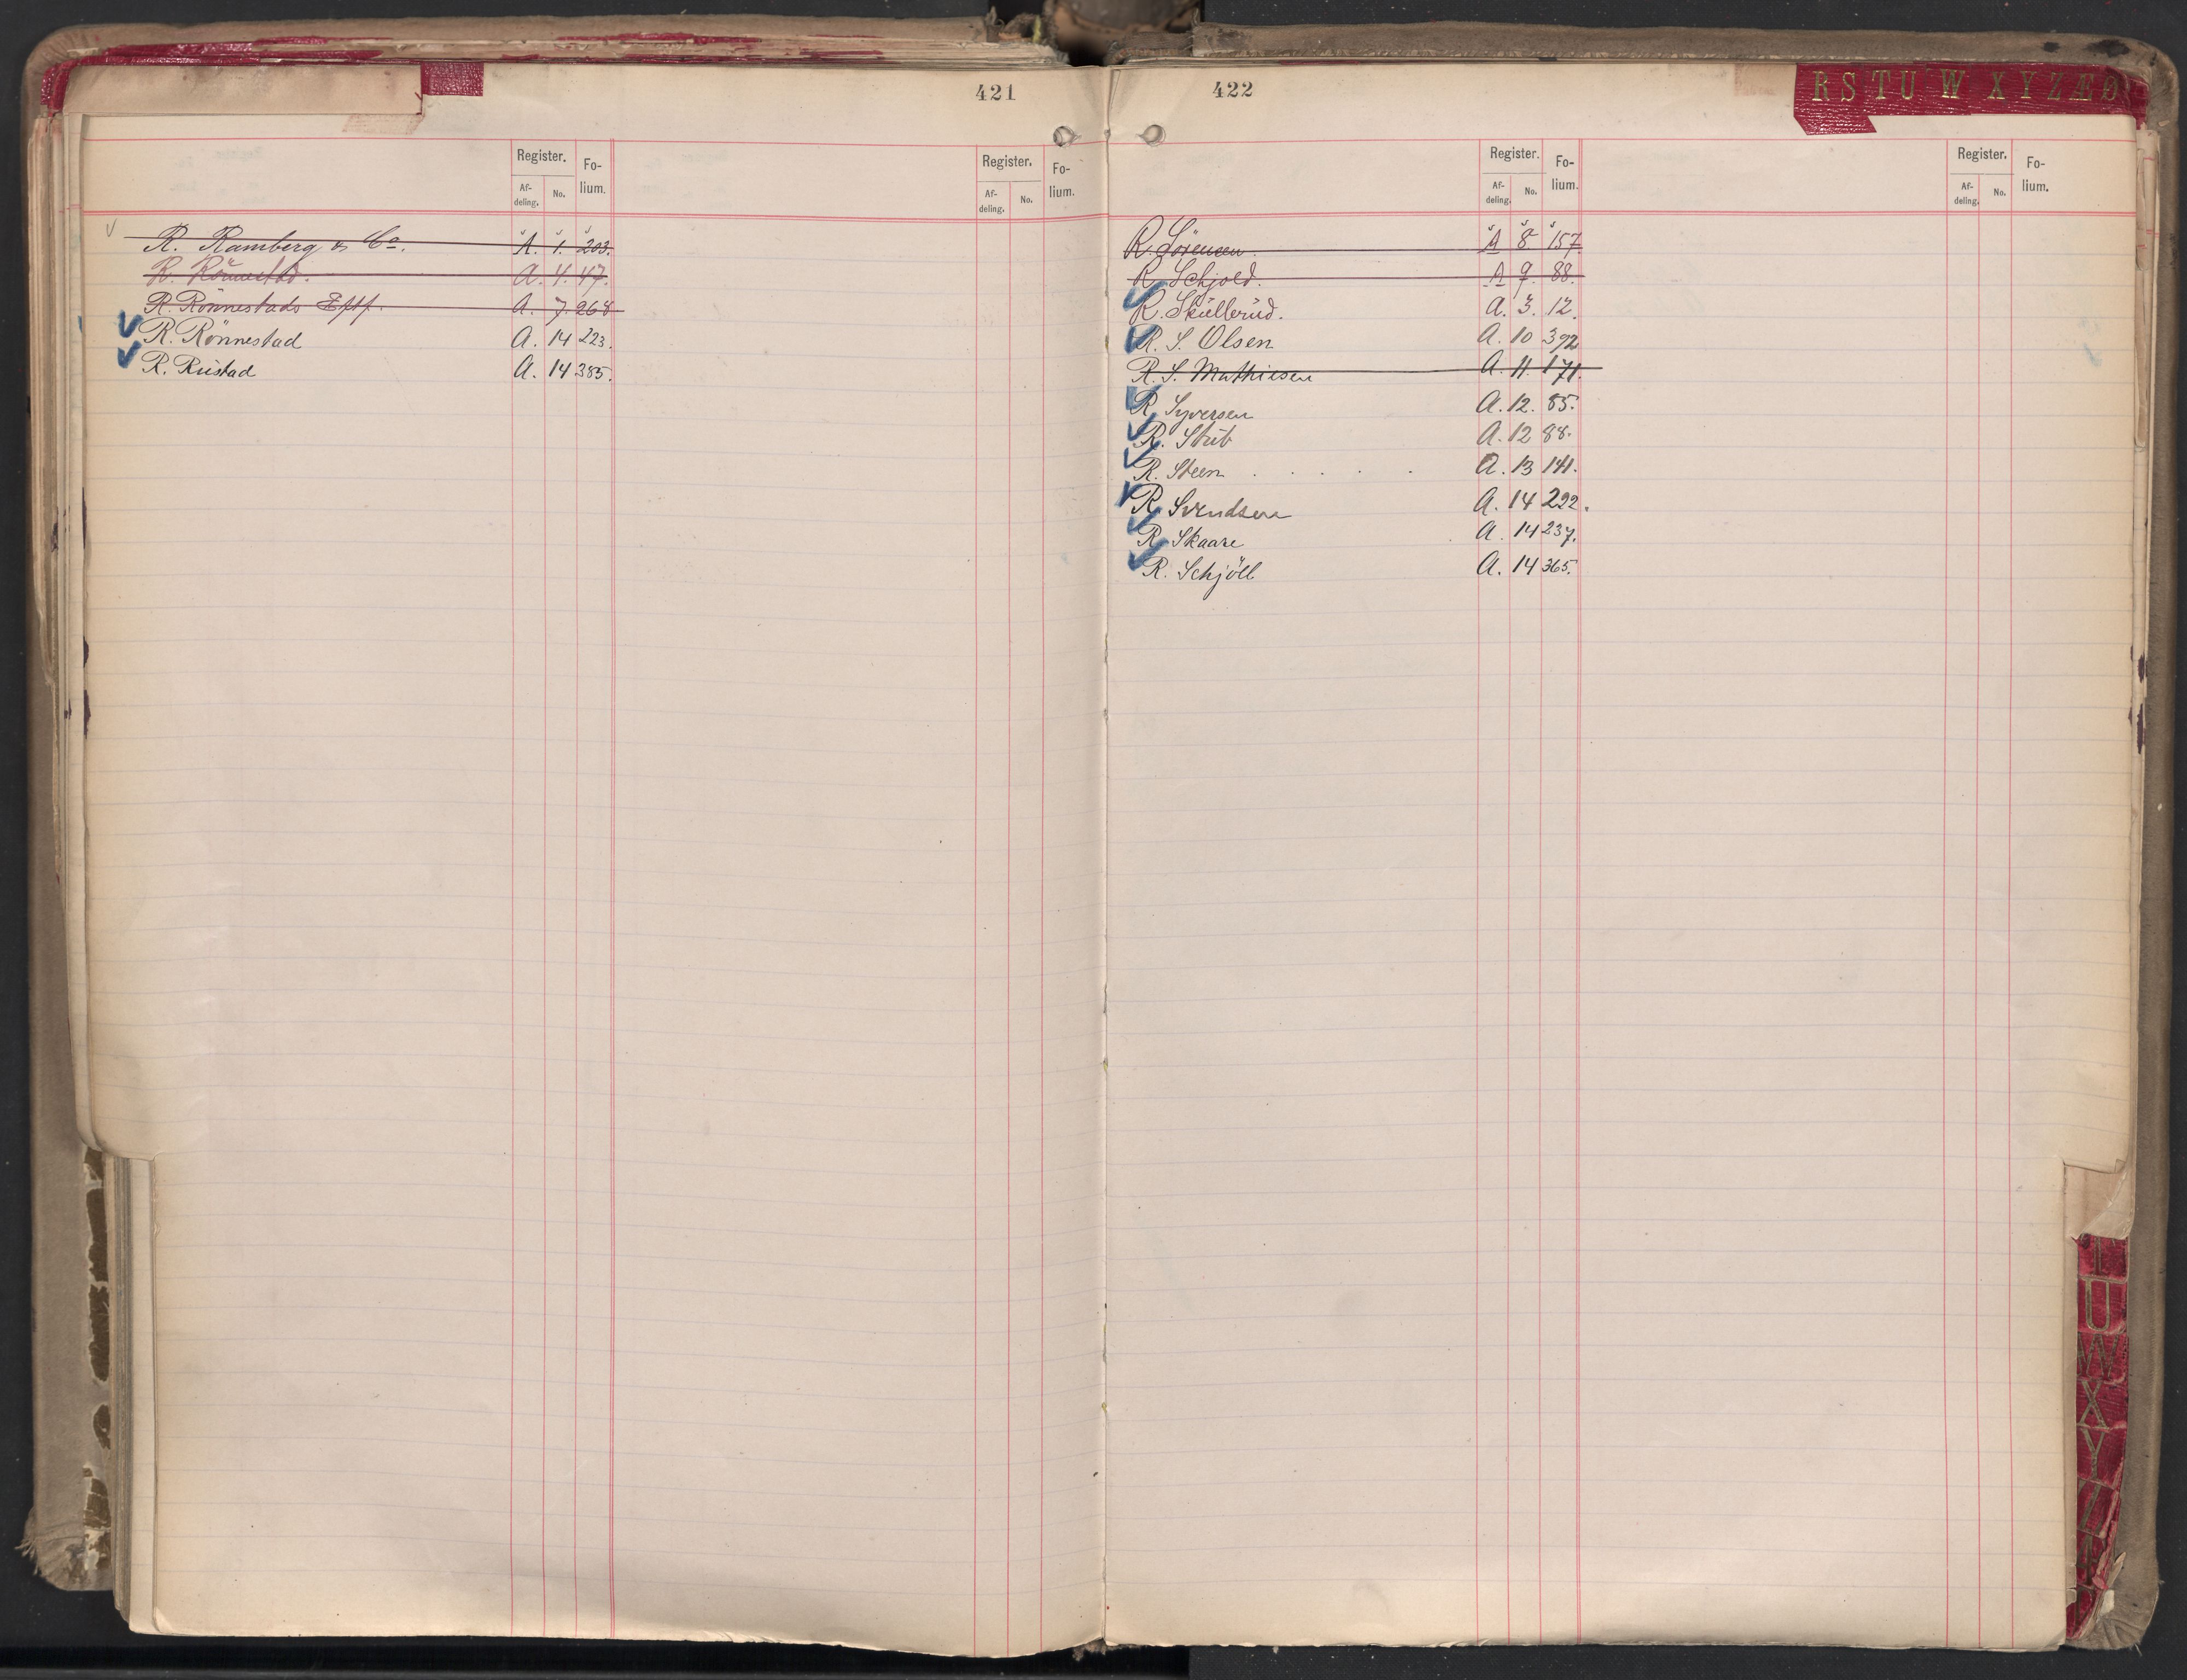 421
Register. Fo-
lium.
Af-
deling. No.
Register. Fo-
lium.
Af-
deling. No.
R. Ramberg & Co. A. 1. 203.
R. Rönnestad. A. 4. 47.
R. Rönnestads Eftf. A. 7. 268
R. Rönnestad A. 14 223.
R. Rustad A. 14 385.
422
R S T U W X Y Z Æ Ø
Register. Fo-
lium.
Af-
deling. No.
Register. Fo-
lium.
Af-
deling. No.
R. Sörensen A 8. 157.
R. Schjold. A 9. 88.
R. Skullerud. A. 3. 12.
R. S. Olsen A. 10 392
R. S. Mathiesen A. 11. 171.
R. Syversen A. 12. 85.
R. Stub A. 12 88.
R. Steen . . . . . A. 13 141.
R. Svendsen A. 14 222.
R. Skaare A. 14 237.
R. Schjöll A. 14 365.
U
W
X
Y
Z